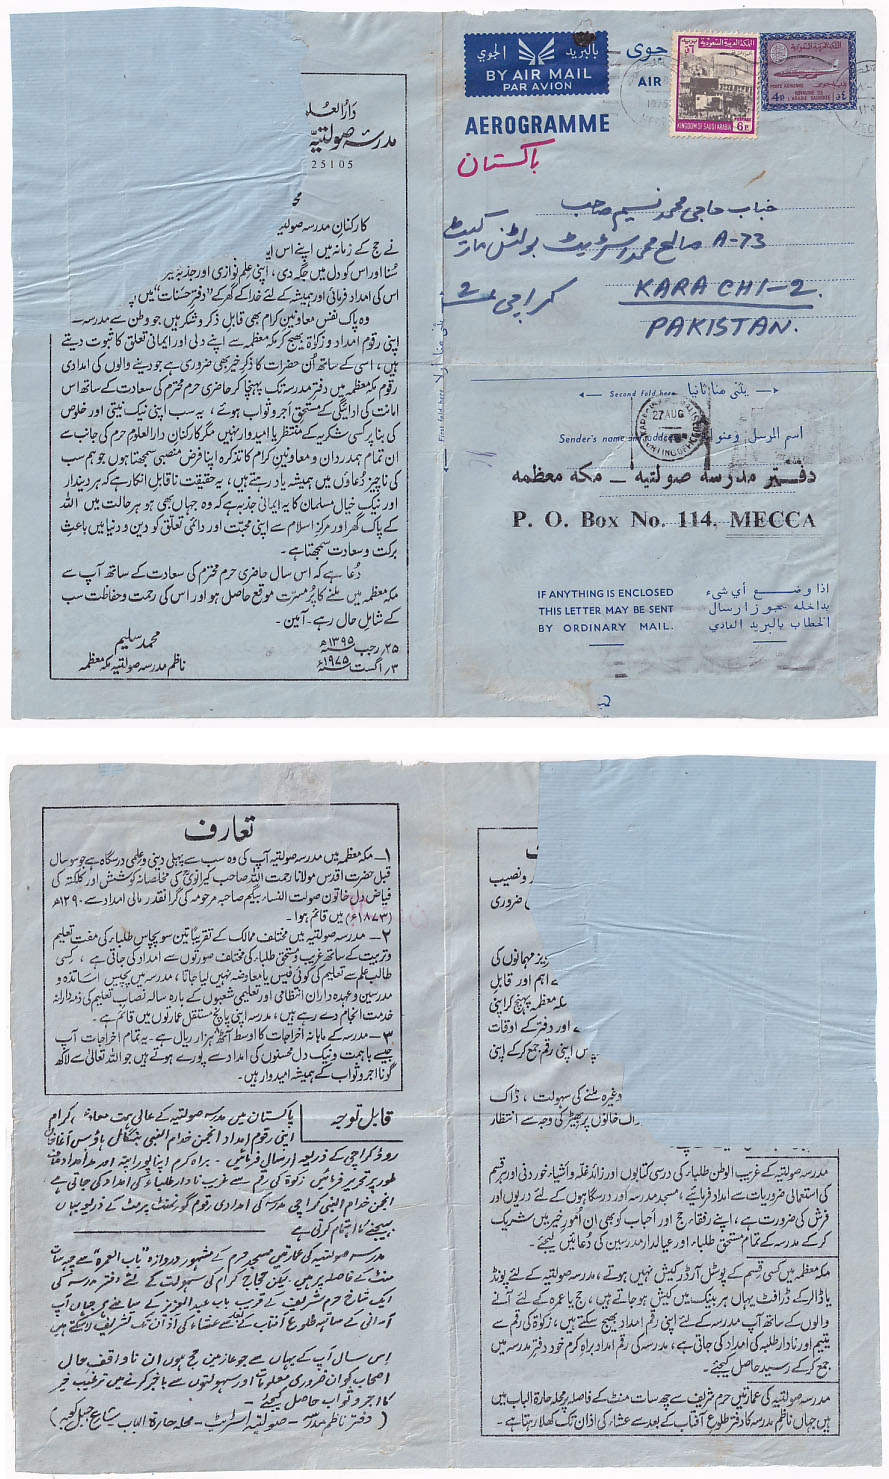 دارُالعلو
مدرسہ صولتیہ
25105
کارکنانِ مدرسہ صولتیہ
نے حج کے زمانہ میں اپنے اس
سُنا اور اس کو دل میں جگہ دی، اپنی علم نوازی اور جذبۂ
اس کی امداد فرمائی اور ہمیشہ کے لئے خدا کے گھر کے "دفترِ حسنات" میں
وہ پاک نفس معاونین کرام بھی قابل ذکر و شکر ہیں جو وطن سے مدرسہ
اپنی رقومِ امداد و زکوٰۃ بھیج کر مکہ معظمہ سے اپنے دلی اور ایمانی تعلق کا ثبوت دیتے
ہیں، اسی کے ساتھ اُن حضرات کا ذکرِ خیر بھی ضروری ہے جو دینے والوں کی امدادی
رقوم مکہ معظمہ میں دفتر مدرسہ تک پہنچا کر حاضری حرم محترم کی سعادت کے ساتھ اس
امانت کی ادائیگی کے مستحقِ اجر و ثواب ہوئے، یہ سب اپنی نیک نیتی اور خلوص
کی بنا پر کسی شکریہ کے منتظر یا امیدوار نہیں مگر کارکنانِ دارالعلوم حرم کی جانب سے
ان تمام ہمدردان و معاونین کرام کا تذکرہ اپنا فرض منصبی سمجھتا ہوں جو ہم سب
کی ناچیز دُعاؤں میں ہمیشہ یاد رہتے ہیں، یہ حقیقت ناقابل انکار ہے کہ ہر دیندار
اور نیک خیال مسلمان کا یہ ایمانی جذبہ ہے کہ وہ جہاں بھی ہو ہر حالت میں اللہ
کے پاک گھر اور مرکزِ اسلام سے اپنی محبت اور دائمی تعلق کو دین و دنیا میں باعثِ
برکت و سعادت سمجھتا ہے۔
دُعا ہے کہ اس سال حاضری حرم محترم کی سعادت کے ساتھ آپ سے
مکہ معظمہ میں ملنے کا پُر مسرّت موقع حاصل ہو اور اس کی رحمت و حفاظت سب
کے شاملِ حال رہے۔ آمین۔
محمد سلیم
ناظم مدرسہ صولتیہ مکہ معظمہ
۲۵؍ رجب ۱۳۹۵ھ
۳؍ اگست ۱۹۷۵ء
بالبريد الجوي
BY AIR MAIL
PAR AVION
جوى
AIR
AEROGRAMME
KINGDOM OF SAUDI ARABIA 6P
4P
POSTE AERIENNE
ROYAUME DE
L'ARABIE SAOUDITE
باکستان
جناب حاجی محمد نسیم صاحب
A-73 صالح محمد اسٹریٹ بولٹن مارکیٹ
کراچی ۲ KARACHI-2.
PAKISTAN.
First fold here
يثنى هنا أولا
Second fold here يثنى هنا ثانيا
27 AUG
Sender's name and address اسم المرسل وعنوانه
دفتر مدرسه صولتيه – مكه معظمه
P. O. Box No. 114, MECCA
IF ANYTHING IS ENCLOSED
THIS LETTER MAY BE SENT
BY ORDINARY MAIL.
اذا وضع أي شيء
بداخله يجوز ارسال
الخطاب بالبريد العادي
تعارف
۱ـ مکہ معظمہ میں مدرسہ صولتیہ آپ کی وہ سب سے پہلی دینی و علمی درسگاہ ہے جو سو سال
قبل حضرت اقدس مولانا رحمت اللہ صاحب کیرانویؒ کی مخلصانہ کوشش اور کلکتہ کی
فیاض دل خاتون صولت النساء بیگم صاحبہ مرحومہ کی گرانقدر مالی امداد سے ۱۲۹۰ھ
(۱۸۷۳ء) میں قائم ہوا۔
۲ـ مدرسہ صولتیہ میں مختلف ممالک کے تقریباً تین سو پچاس طلباء کی مفت تعلیم
و تربیت کے ساتھ غریب و مستحق طلباء کی مختلف صورتوں سے امداد کی جاتی ہے، کسی
طالب علم سے تعلیم کی کوئی فیس یا معاوضہ نہیں لیا جاتا، مدرسہ میں پچیس اساتذہ و
مدرسین و عہدہ داران انتظامی اور تعلیمی شعبوں کے بارہ سالہ نصاب تعلیم کی ذمہ دارانہ
خدمت انجام دے رہے ہیں، مدرسہ اپنی پانچ مستقل عمارتوں میں قائم ہے۔
۳ـ مدرسہ کے ماہانہ اخراجات کا اوسط آٹھ ہزار ریال ہے۔ یہ تمام اخراجات آپ
جیسے باہمت و نیک دل محسنوں کی امداد سے پورے ہوتے ہیں جو اللہ تعالیٰ سے لاکھ
گونا اجر و ثواب کے ہمیشہ امیدوار ہیں۔
قابل توجہ
پاکستان میں مدرسہ صولتیہ کے عالی ہمت معاونین کرام
اپنی رقوم امداد انجمن خدام النبی بنگالی ہاؤس آغا خان
روڈ کراچی کے ذریعہ ارسال فرمائیں۔ براہ کرم اپنا پورا پتہ اور مد امداد صاف
طور پر تحریر فرمائیں زکوٰۃ کی رقم سے غریب و نادار طلباء کی امداد کی جاتی ہے
انجمن خدام النبی کراچی مدرسہ کی امدادی رقوم گورنمنٹ پرمٹ کے ذریعہ یہاں
بھیجنے کا اہتمام کرتی ہے
مدرسہ صولتیہ کی عمارتیں مسجد حرم کے مشہور دروازہ "باب العمرۃ" سے چھ سات
منٹ کے فاصلہ پر ہیں۔ لیکن حجاج کرام کی سہولت کے لئے دفتر مدرسہ کی
ایک شاخ حرم شریف کے قریب باب عبدالعزیز کے سامنے ہے جہاں آپ
آسانی کے ساتھ طلوع آفتاب کے بعد سے عشاء کی اذان تک تشریف لا سکتے ہیں
اس سال آپ کے یہاں سے جو عازمین حج ہوں ان ناواقف حال
اصحاب کو ان ضروری معلومات اور سہولتوں سے باخبر کرنے میں ترغیب خیر
کا اجر و ثواب حاصل کیجئے۔
( دفتر ناظم مدرسہ – صولتیہ اسٹریٹ – محلہ حارۃ الباب شارع جبل کعبہ )
ر ونصیب
ی ضروری
یز مہمانوں کی
ے اہم اور قابل
مکہ معظمہ پہنچ کر اپنی
ے اور دفتر کے اوقات
پاس اپنی رقم جمع کر کے اپنی
وغیرہ ملنے کی سہولت، ڈاک
ڈاک خانوں پر بھیڑ کی وجہ سے انتظار
مدرسہ صولتیہ کے غریب الوطن طلباء کی درسی کتابوں اور زائد غلّہ و اشیاء خوردنی اور ہر قسم
کی استعمالی ضروریات سے امداد فرمائیے، مسجد مدرسہ اور درسگاہوں کے لئے دریوں اور
فرش کی ضرورت ہے، اپنے رفقاء حج اور احباب کو بھی ان اُمورِ خیر میں شریک
کر کے مدرسہ کے تمام مستحق طلباء اور عیالدار مدرسین کی دُعائیں لیجئے۔
مکہ معظمہ میں کسی قسم کے پوسٹل آرڈر کیش نہیں ہوتے، مدرسہ صولتیہ کے لئے پونڈ
یا ڈالر کے ڈرافٹ یہاں ہر بینک میں کیش ہو جاتے ہیں، حج یا عمرہ کے لئے آنے
والوں کے ساتھ آپ مدرسہ کے لئے اپنی رقم امداد بھیج سکتے ہیں، زکوٰۃ کی رقم سے
یتیم اور نادار طلبہ کی امداد کی جاتی ہے، مدرسہ کی رقم امداد براہِ کرم خود دفتر مدرسہ میں
جمع کر کے رسید حاصل کیجئے۔
مدرسہ صولتیہ کی عمارتیں حرم شریف سے چھ سات منٹ کے فاصلہ پر محلہ حارۃ الباب میں
ہیں جہاں ناظم مدرسہ کا دفتر طلوع آفتاب کے بعد سے عشاء کی اذان تک کھلا رہتا ہے۔